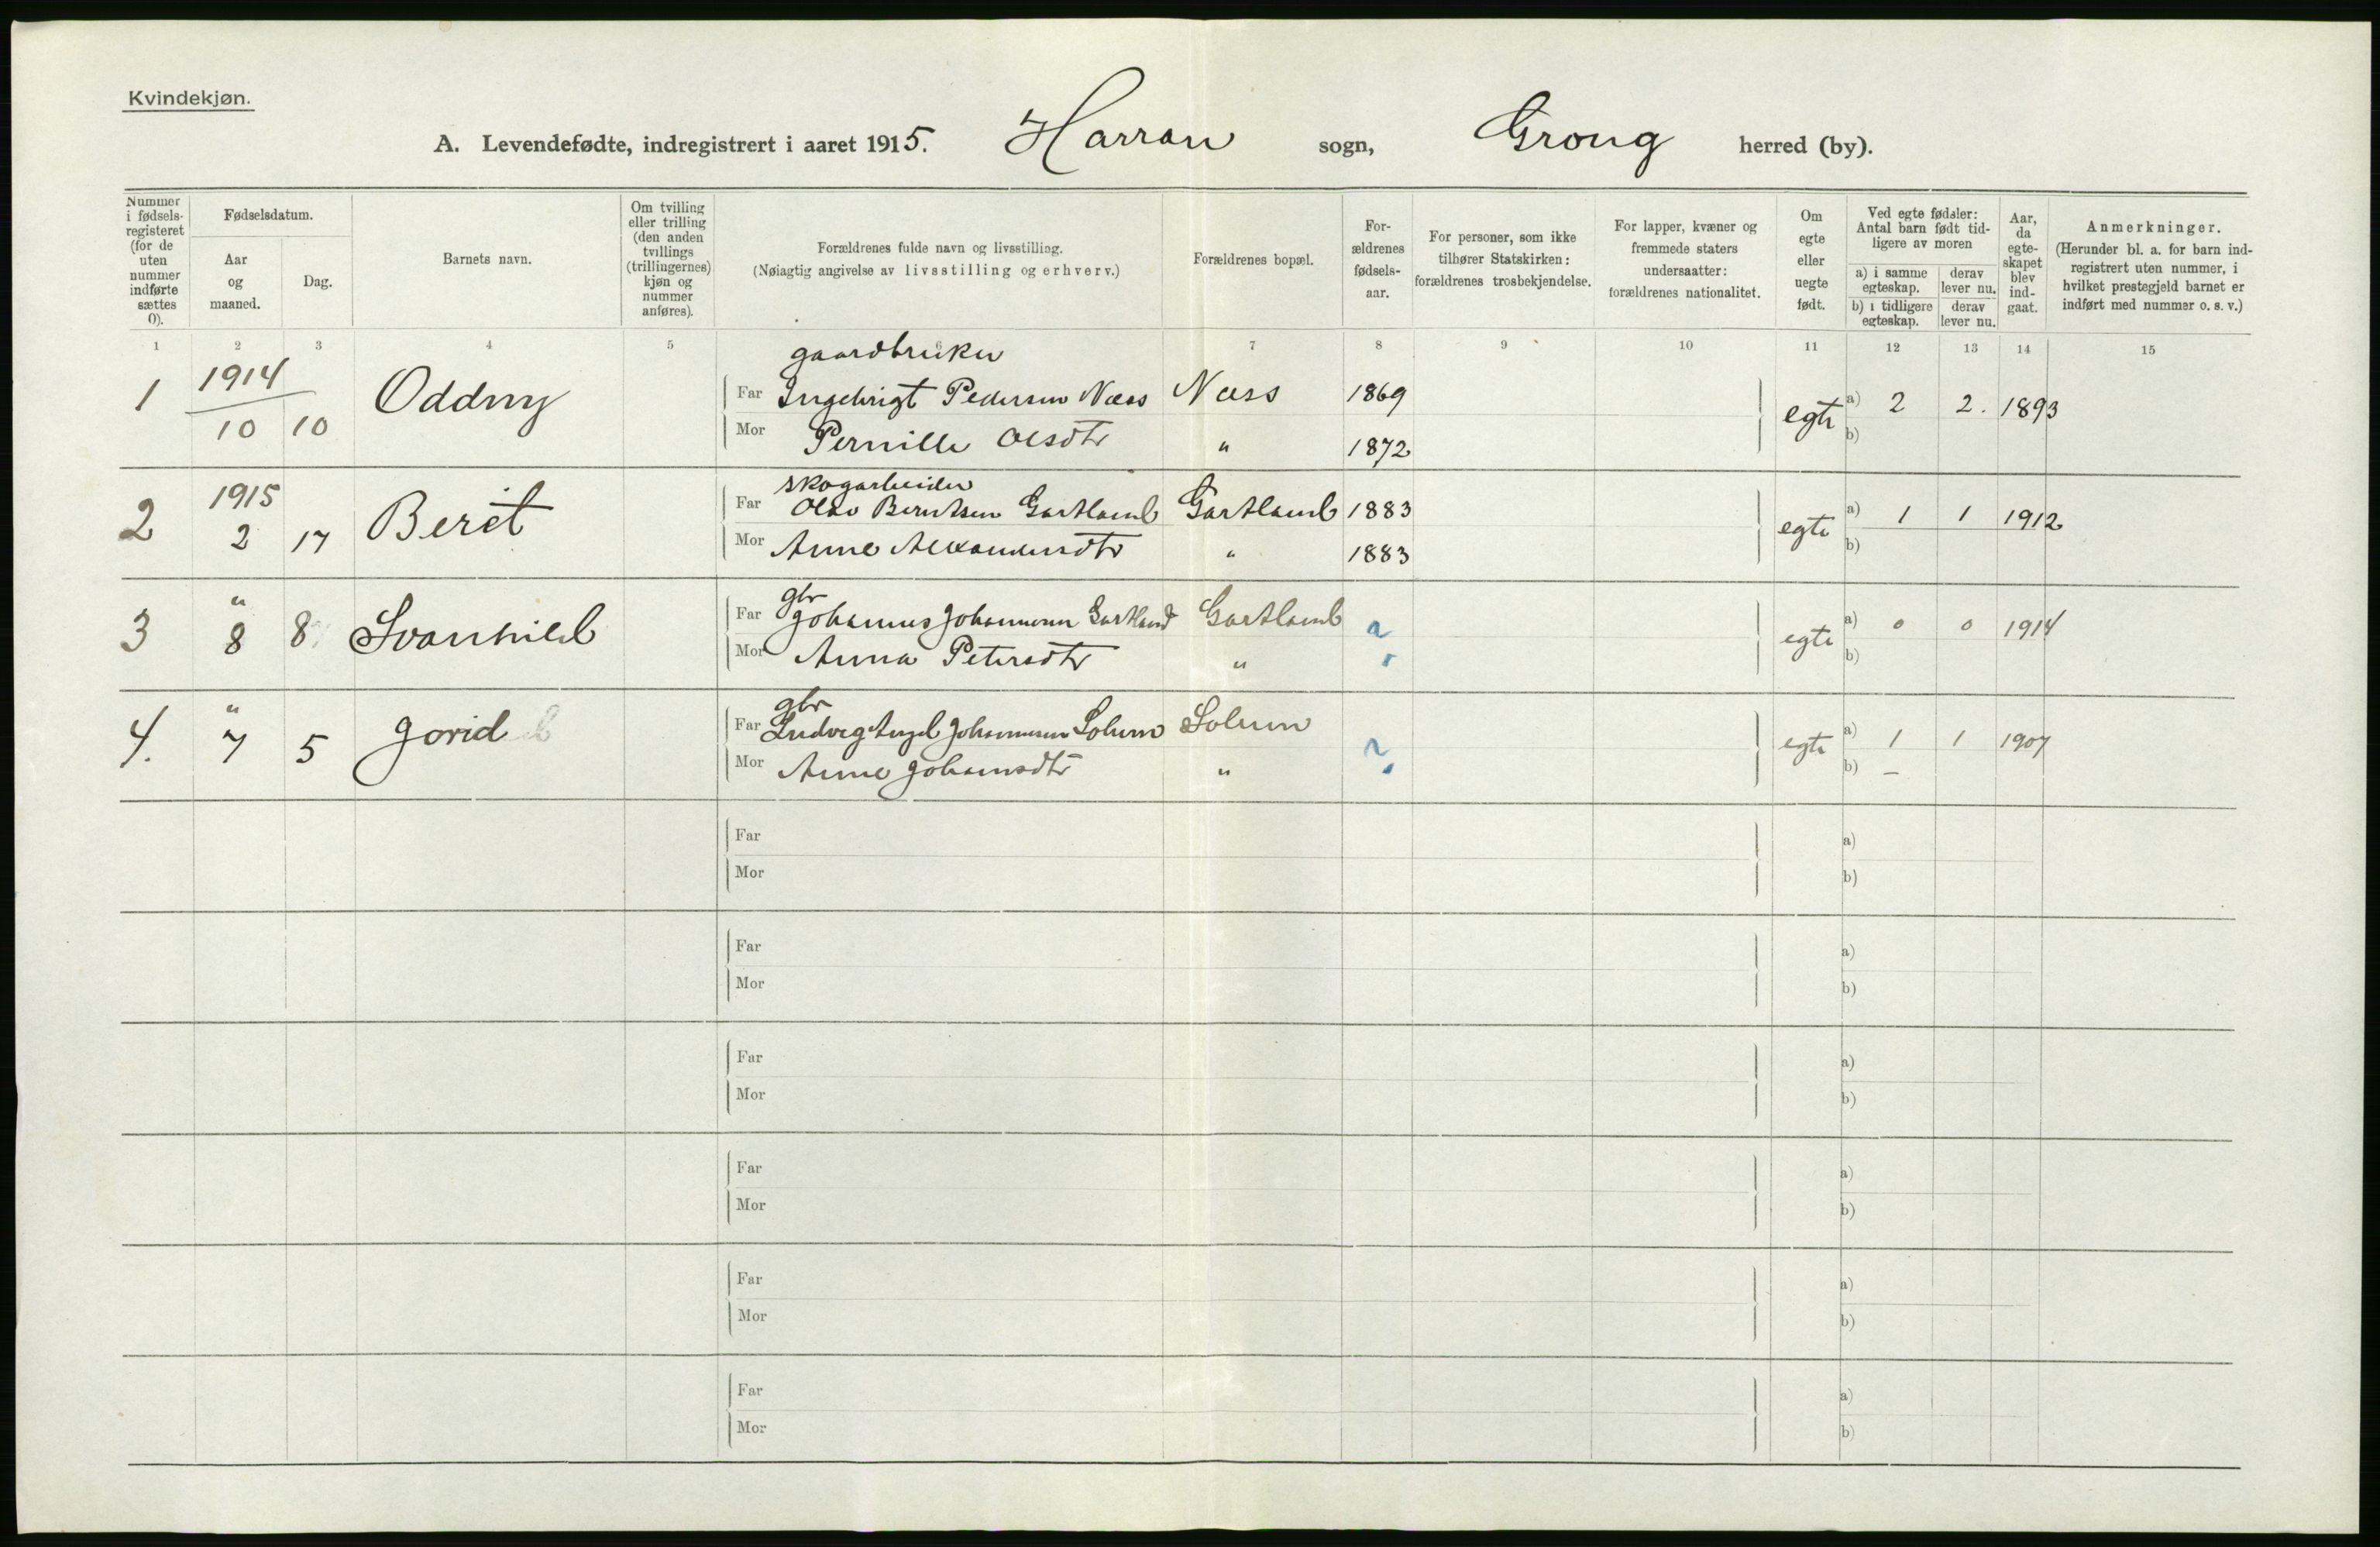 Kvindekjøn.
A. Levendefødte, indregistrert i aaret 1915. Harran sogn, Grong herred (by).
Nummer i fødsels-registeret (for de uten nummer indførte sættes 0).
Fødselsdatum.
Aar og maaned.
Dag.
Barnets navn.
Om tvilling eller trilling (den anden tvillings (trillingernes) kjøn og nummer anføres).
Forældrenes fulde navn og livsstilling.
(Nøiagtig angivelse av livsstilling og erhverv.)
Forældrenes bopæl.
For-ældrenes fødsels-aar.
For personer, som ikke tilhører Statskirken: forældrenes trosbekjendelse.
For lapper, kvæner og fremmede staters undersaatter: forældrenes nationalitet.
Om egte eller uegte født.
Ved egte fødsler: Antal barn født tid-ligere av moren
a) i samme egteskap.
derav lever nu.
b) i tidligere egteskap.
derav lever nu.
Aar, da egte-skapet blev ind-gaat.
Anmerkninger.
(Herunder bl. a. for barn ind-registrert uten nummer, i hvilket prestegjeld barnet er indført med nummer o. s. v.)
1 2 3 4 5 6 7 8 9 10 11 12 13 14 15
gaardbruker
1 1914 10 10 Oddny Far Ingebrigt Pedersen Næss Næss 1869 egte a) 2 2. 1893
Mor Pernille Olsdtr " 1872 b)
skogarbeider
2 1915 2 17 Berèt Far Olav Berntsen Gartland Gartland 1883 egte a) 1 1 1912
Mor Anne Alexandersdtr " 1883 b)
gbr
3 " 8 8 Svanhild Far Johannes Johannesen Gartland Gartland egte a) 0 0 1914
Mor Anna Petersdtr " b)
gbr
4. " 7 5 Jorid Far Ludvig Johannesen Solum Solum egte a) 1 1 1907
Mor Anne Johansdtr " b) —
Far a)
Mor b)
Far a)
Mor b)
Far a)
Mor b)
Far a)
Mor b)
Far a)
Mor b)
Far a)
Mor b)